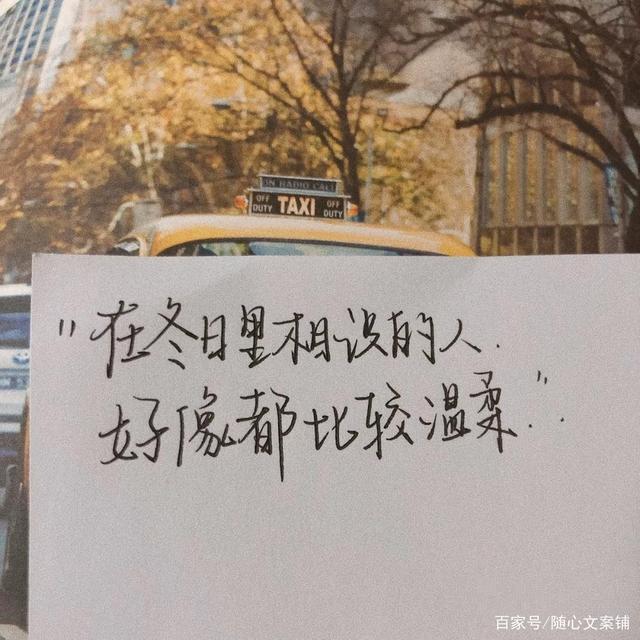 ON RADIO CALL
OFF DUTY TAXI OFF DUTY
"在冬日里相识的人.
好像都比较温柔."..
百家号/随心文案铺